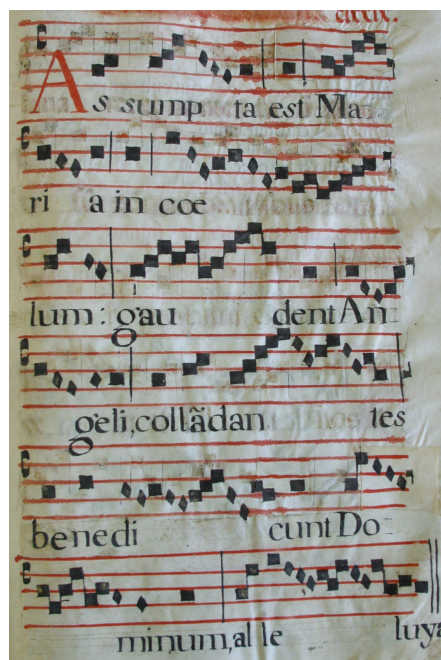 As sump ta est Ma
ri a in cœ
lum: gau dent An:
geli, collãdan tes
benedi cunt Do:
minum, al le luya